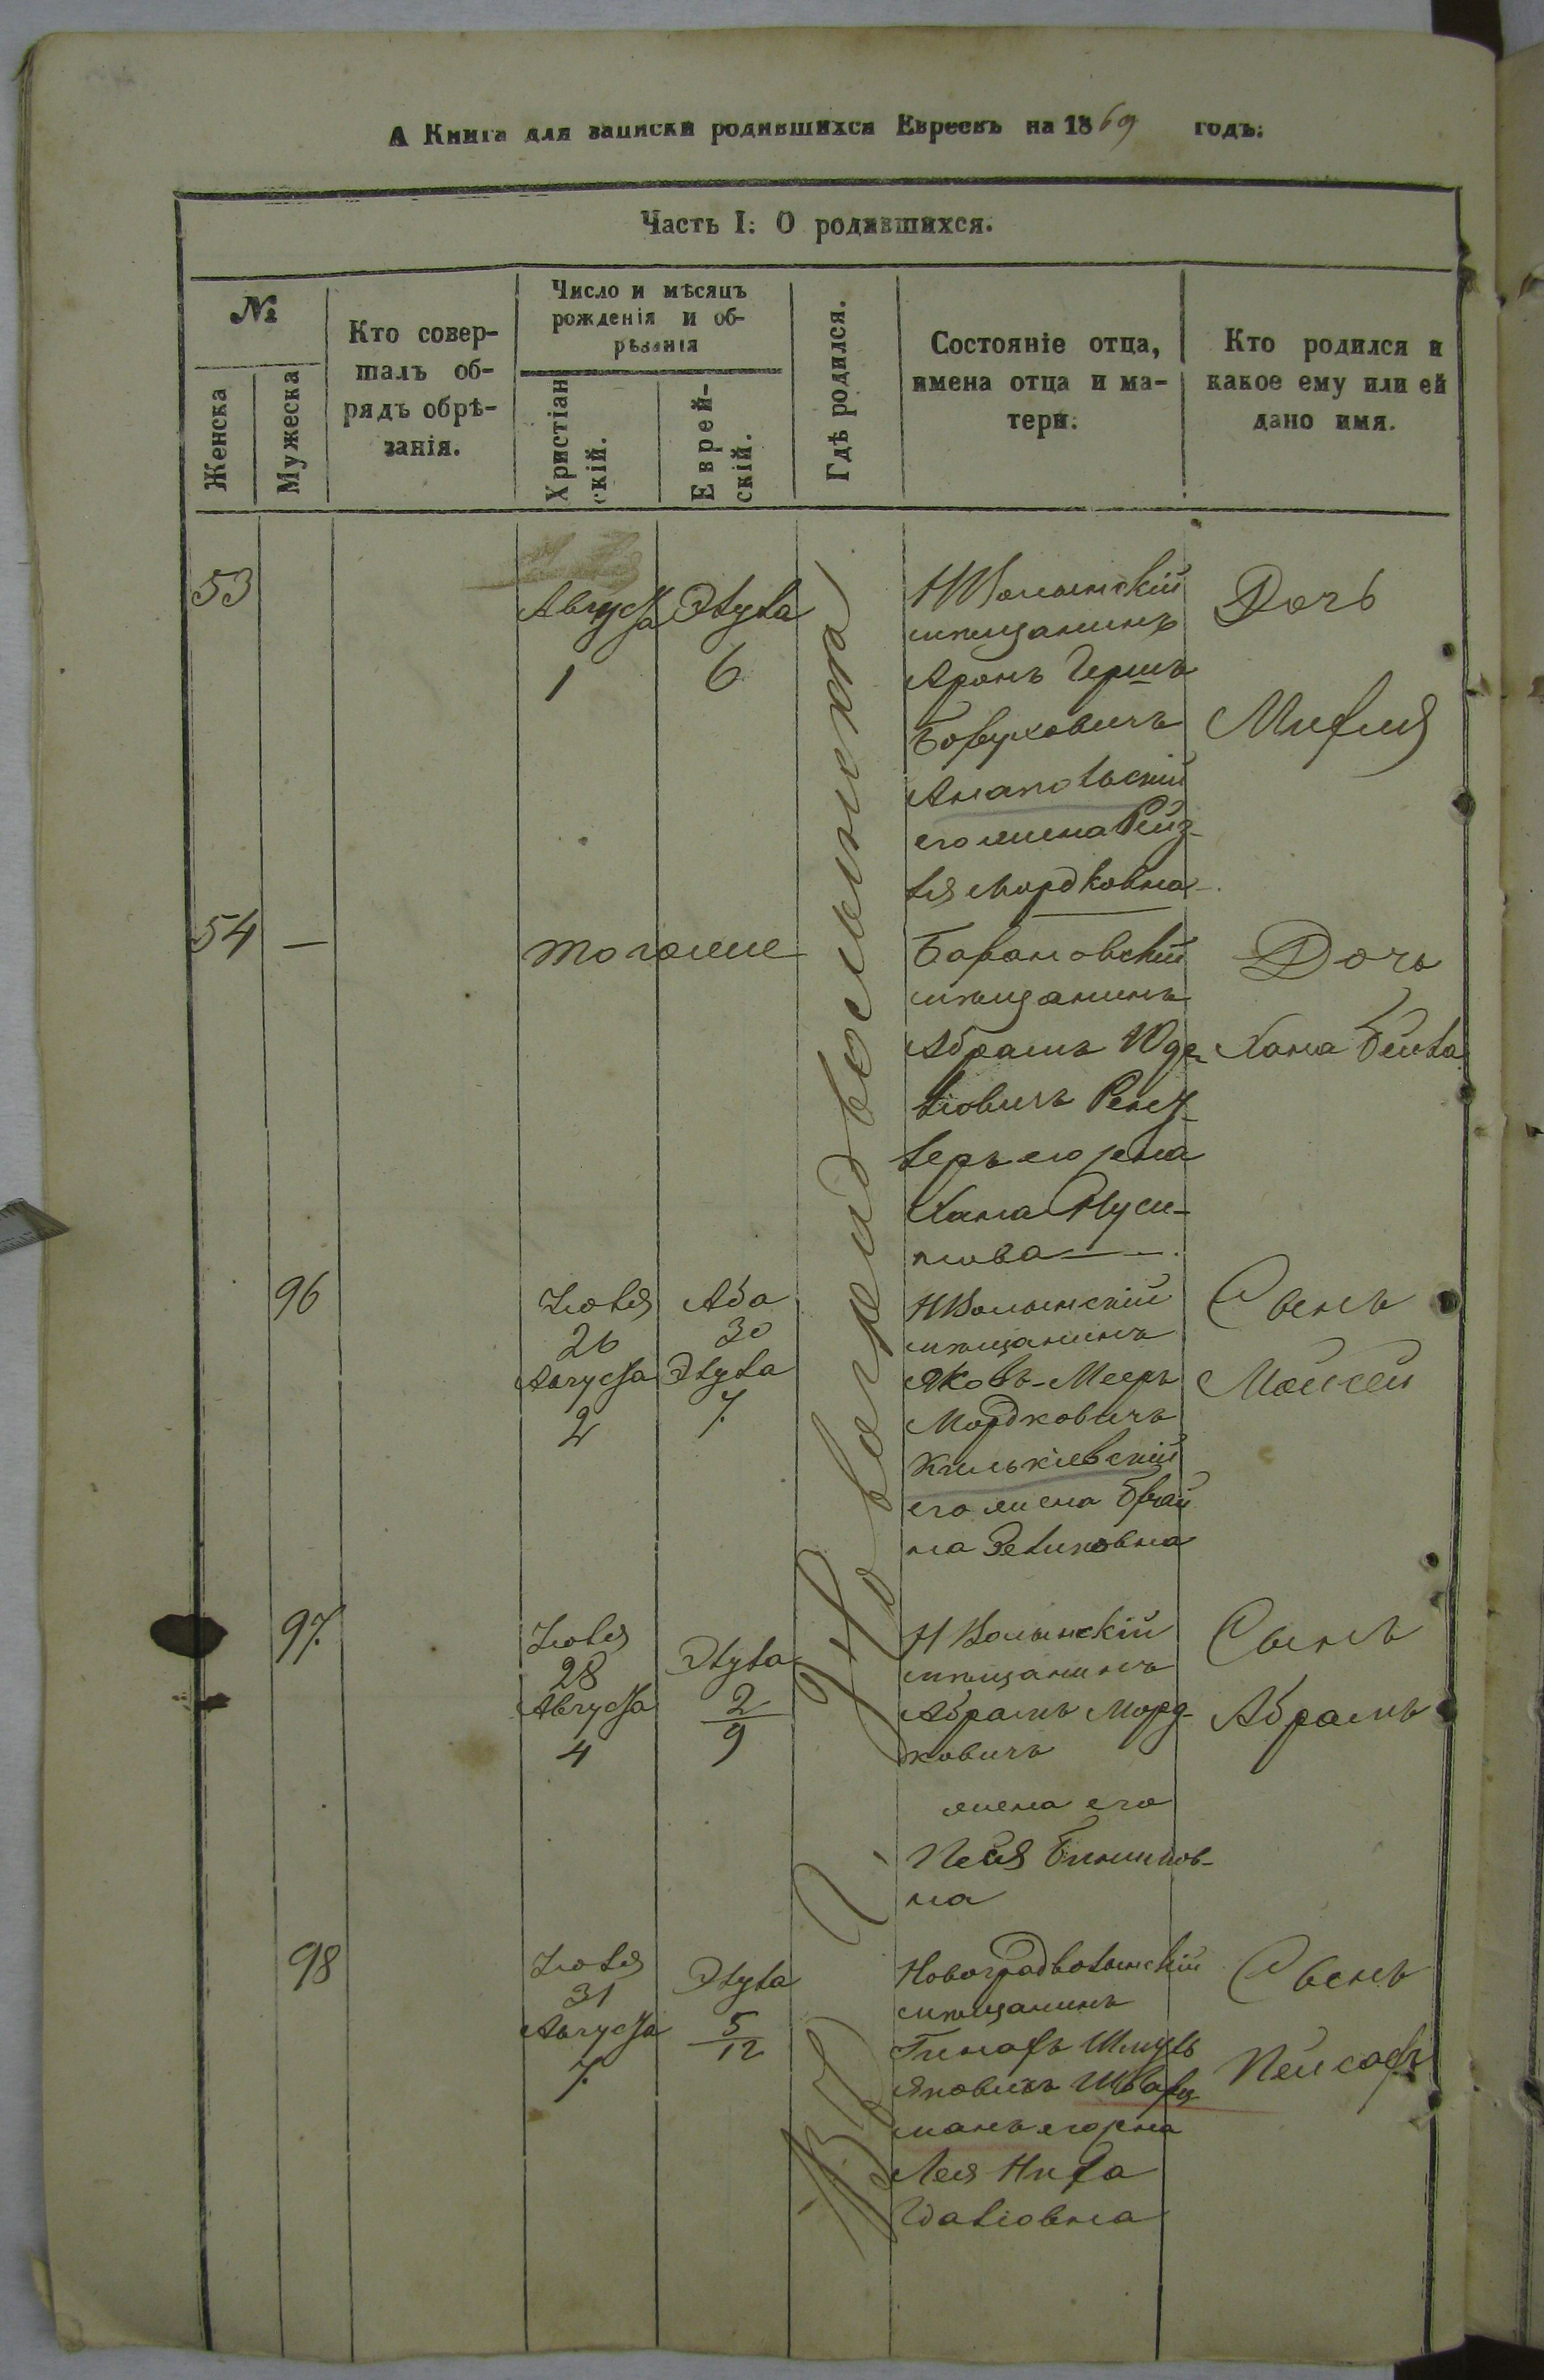 А Книга для записки родившихся Евреевъ на 1869 годъ.
Часть I: О родившихся.
№
Женска
Мужеска
Кто совер-
шалъ об-
рядъ обрѣ-
занія.
Число и мѣсяцъ
рожденія и об-
рѣзанія
Христіан
скій.
Еврей-
скій.
Гдѣ родился.
Состояніе отца,
имена отца и ма-
тери.
Кто родился и
какое ему или ей
дано имя.
Въ г. Новоградволынска
53
Августа
1
Элула
6
НВолынскій
мѣщанинъ
Аронъ Гершъ
Боруховичъ
Анапольскій
его жена Рейз-
ля Мордковна
Дочь
54 —
тогоже
Барановскій
мѣщанинъ
Абрамъ Юде
левичъ
его жена
Хана Нуси-
мова
Дочь
Хана Бейла
96
Іюля
26
Августа
2
Аба
30
Элула
7.
НВолынскій
мѣщанинъ
Яковъ-Мееръ
Мордковичъ
Килькіевскій
его жена Брай
на Зеликовна
Сынъ
Мойсей
97.
Іюля
28
Августа
4
Элула
2
9
НВолынскій
мѣщанинъ
Абрамъ Морд-
ковичъ
жена его
Песя Бинимов-
на
Сынъ
Абрамъ
98
Іюля
31
Августа
7.
Элула
5
12
Новоградволынскій
мѣщанинъ
Шмуль
Яновичъ Шварц
манъ его жена
Лея
Сынъ
Пейсахъ